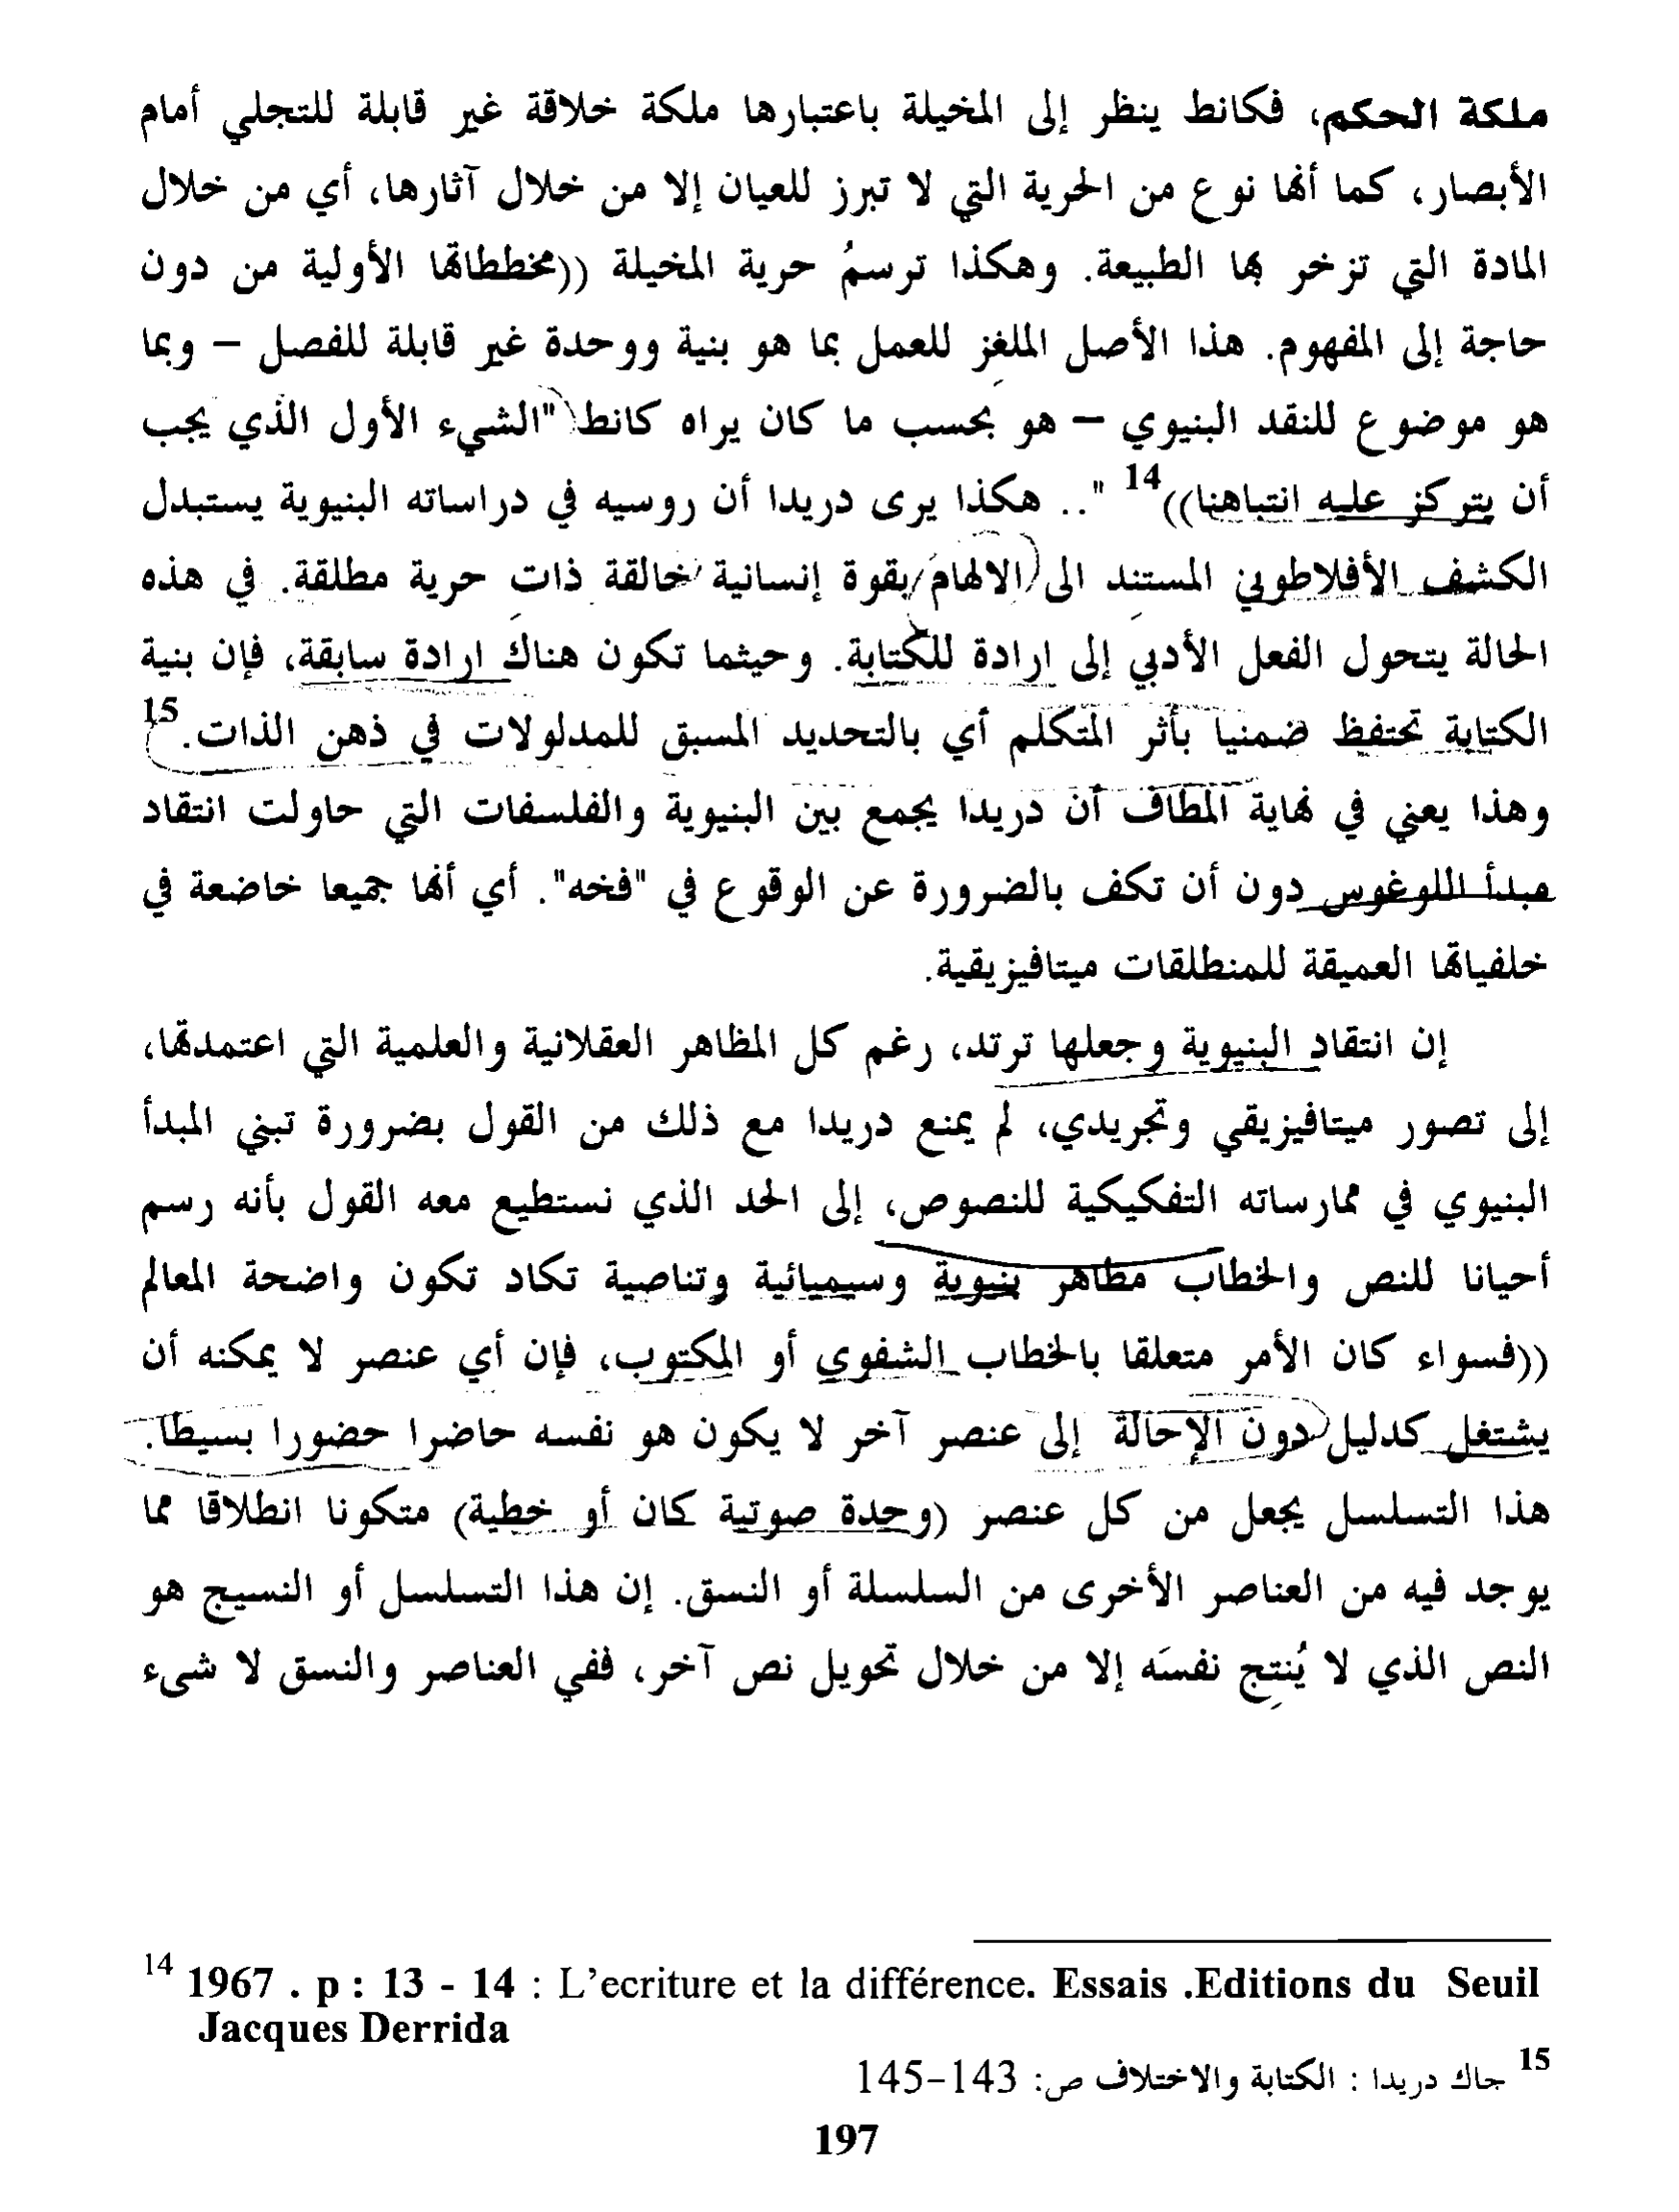 ملكة الحكم، فكانط ينظر إلى المخيلة باعتبارها ملكة خلاقة غير قابلة للتجلي أمام
الأبصار، كما أنها نوع من الحرية التي لا تبرز للعيان إلا من خلال آثارها، أي من خلال
المادة التي تزخر بها الطبيعة. وهكذا ترسمُ حرية المخيلة ((مخططاتها الأولية من دون
حاجة إلى المفهوم. هذا الأصل الملغز للعمل بما هو بنية ووحدة غير قابلة للفصل – وبما
هو موضوع للنقد البنيوي – هو بحسب ما كان يراه كانط "الشيء الأول الذي يجب
أن يتركز عليه انتباهنا))14 ".. هكذا يرى دريدا أن روسيه في دراساته البنيوية يستبدل
الكشف الأفلاطوني المستند الى الالهام بقوة إنسانية خالقة ذات حرية مطلقة. في هذه
الحالة يتحول الفعل الأدبي إلى ارادة للكتابة. وحيثما تكون هناك ارادة سابقة، فإن بنية
الكتابة تحتفظ ضمنيا بأثر المتكلم أي بالتحديد المسبق للمدلولات في ذهن الذات.15
وهذا يعني في نهاية المطاف أن دريدا يجمع بين البنيوية والفلسفات التي حاولت انتقاد
مبدأ اللوغوس دون أن تكف بالضرورة عن الوقوع في "فخه". أي أنها جميعا خاضعة في
خلفياتها العميقة للمنطلقات ميتافيزيقية.
إن انتقاد البنيوية وجعلها ترتد، رغم كل المظاهر العقلانية والعلمية التي اعتمدتها،
إلى تصور ميتافيزيقي وتجريدي، لم يمنع دريدا مع ذلك من القول بضرورة تبني المبدأ
البنيوي في ممارساته التفكيكية للنصوص، إلى الحد الذي نستطيع معه القول بأنه رسم
أحيانا للنص والخطاب مظاهر بنيوية وسيميائية وتناصية تكاد تكون واضحة المعالم
((فسواء كان الأمر متعلقا بالخطاب الشفوي أو المكتوب، فإن أي عنصر لا يمكنه أن
يشتغل كدليل دون الإحالة إلى عنصر آخر لا يكون هو نفسه حاضرا حضورا بسيطا.
هذا التسلسل يجعل من كل عنصر (وحدة صوتية كان أو خطية) متكونا انطلاقا مما
يوجد فيه من العناصر الأخرى من السلسلة أو النسق. إن هذا التسلسل أو النسيج هو
النص الذي لا يُنتِج نفسَه إلا من خلال تحويل نص آخر، ففي العناصر والنسق لا شيء
14 1967 . p : 13 - 14 : L'ecriture et la différence. Essais .Editions du Seuil
Jacques Derrida
15 جاك دريدا : الكتابة والاختلاف ص: 143-145
197